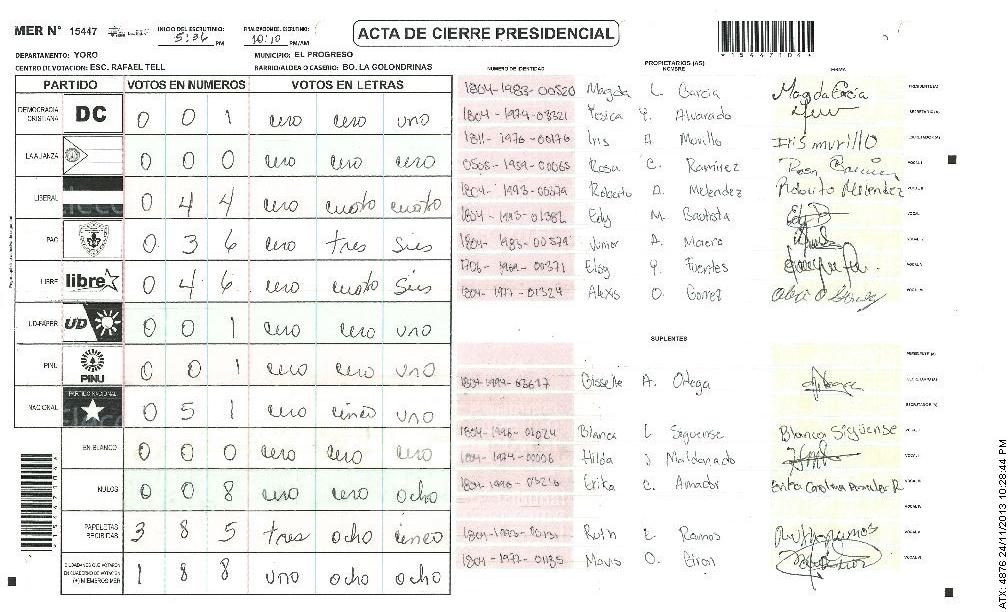 MER Nº 15447 INICIO DEL ESCRUTINIO: 5:36 PM FINALIZACION DEL ESCRUTINIO: 10:10 PM/AM
ACTA DE CIERRE PRESIDENCIAL
DEPARTAMENTO: YORO MUNICIPIO: EL PROGRESO
CENTRO DE VOTACION: ESC. RAFAEL TELL BARRIO/ALDEA O CASERIO: BO. LA GOLONDRINAS
PARTIDO VOTOS EN NUMEROS VOTOS EN LETRAS
DEMOCRACIA CRISTIANA DC 0 0 1 cero cero uno
LA ALIANZA 0 0 0 cero cero cero
LIBERAL 0 4 4 cero cuatro cuatro
PAC 0 3 6 cero tres Sies
LIBRE libre 0 4 6 cero cuatro Sies
UD-FAPER UD 0 0 1 cero cero uno
PINU PINU 0 0 1 cero cero uno
NACIONAL PARTIDO NACIONAL 0 5 1 cero cinco uno
EN BLANCO 0 0 0 cero cero cero
NULOS 0 0 8 cero cero ocho
PAPELETAS RECIBIDAS 3 8 5 tres ocho cinco
CIUDADANOS QUE VOTARON EN CUADERNO DE VOTACION (+) MIEMBROS MER 1 8 8 uno ocho ocho
NUMERO DE IDENTIDAD PROPIETARIOS (AS) NOMBRE FIRMA
1804-1983-00520 Magda L Garcia Magda Garcia PRESIDENTE (A)
1804-1974-03321 Yesica Y. Alvarado SECRETARIO (A)
1811-1976-00176 Iris Morillo Iris murillo ESCRUTADOR (A)
0505-1959-00065 Rosa C. Ramírez VOCAL I
1804-1993-00379 Roberto A. Melendez Roberto Melendez VOCAL II
1804-1993-01382 Edy M. Bautista VOCAL
1804-1985-00579 Junior A. VOCAL
1706-1969-00371 Elsy Y. Fuentes VOCAL
1804-1977-01324 Alexis O. Gomez VOCAL
SUPLENTES
PRESIDENTE (A)
Gisselle A. Ortega SECRETARIO (A)
ESCRUTADOR (A)
1804-1996-01024 Blanca L Siguense Blanca Sigüense VOCAL I
1804-1974-00006 Hilda J Maldonado VOCAL
Erika C. Amador VOCAL
VOCAL IV
Ruth E. Ramos VOCAL V
1804-1977-01135 O. Giron VOCAL VI
ATX: 4876 24/11/2013 10:28:44 PM